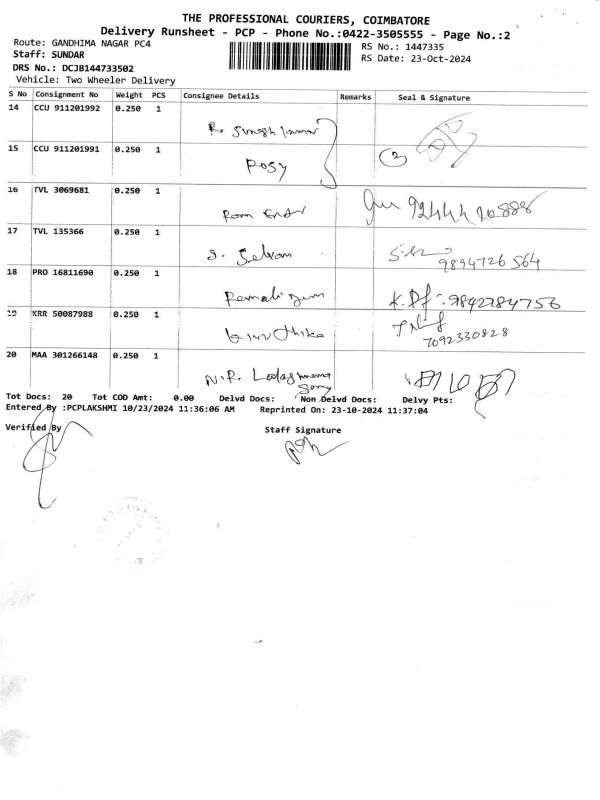 THE PROFESSIONAL COURIERS, COIMBATORE
Delivery Runsheet - PCP - Phone No.:0422-3505555 - Page No.:2
Route: GANDHIMA NAGAR PC4 RS No.: 1447335
Staff: SUNDAR RS Date: 23-Oct-2024
DRS No.: DCJB144733502
Vehicle: Two Wheeler Delivery
S No Consignment No Weight PCS Consignee Details Remarks Seal & Signature
14 CCU 911201992 0.250 1
15 CCU 911201991 0.250 1
Rosy 2
16 TVL 3069681 0.250 1
17 TVL 135366 0.250 1
Selvam
9894726564
18 PRO 16811690 0.250 1
9842784756
19 KRR 50087988 0.250 1
7092330828
20 MAA 301266148 0.250 1
N.R.
Tot Docs: 20 Tot COD Amt: 0.00 Delvd Docs: Non Delvd Docs: Delvy Pts:
Entered By :PCPLAKSHMI 10/23/2024 11:36:06 AM Reprinted On: 23-10-2024 11:37:04
Verified By Staff Signature